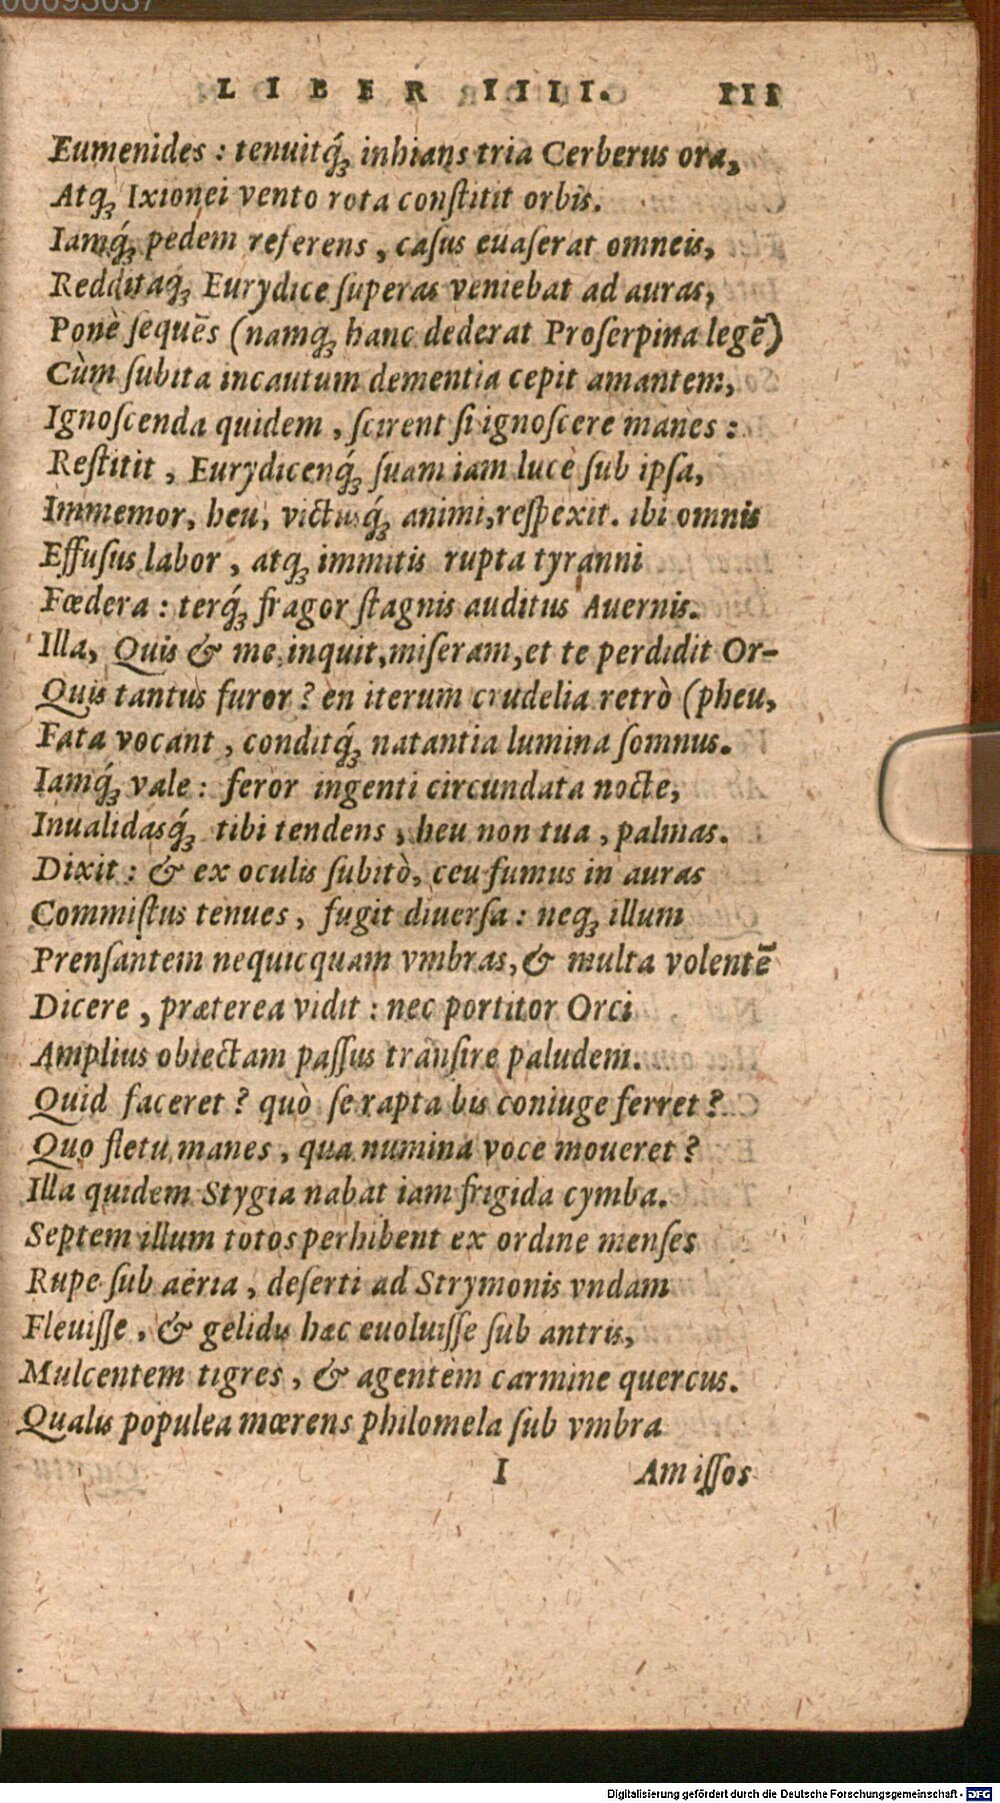 00093037
LIBER IIII. III
Eumenides : tenuitq́ꝫ inhians tria Cerberus ora,
Atqꝫ Ixionei vento rota conſtitit orbis.
Iamq́ꝫ pedem referens , caſus euaſerat omneis,
Redditaqꝫ Eurydice ſuperas veniebat ad auras,
Ponè ſequẽs (namqꝫ hanc dederat Proſerpina legẽ)
Cùm ſubita incautum dementia cepit amantem,
Ignoſcenda quidem , ſcirent ſi ignoſcere manes :
Reſtitit , Eurydicenq́ꝫ ſuam iam luce ſub ipſa,
Immemor, heu, victusq́ꝫ animi,reſpexit. ibi omnis
Effuſus labor , atqꝫ immitis rupta tyranni
Fœdera : terq́ꝫ fragor ſtagnis auditus Auernis.
Illa, Quis & me,inquit,miſeram,et te perdidit Or-
Quis tantus furor ? en iterum crudelia retrò (pheu,
Fata vocant , conditq́ꝫ natantia lumina ſomnus.
Iamq́ꝫ vale : feror ingenti circundata nocte,
Inualidasq́ꝫ tibi tendens , heu non tua , palmas.
Dixit : & ex oculis ſubitò, ceu fumus in auras
Commiſtus tenues , fugit diuerſa : neqꝫ illum
Prenſantem nequicquam vmbras, & multa volentẽ
Dicere , præterea vidit : nec portitor Orci
Amplius obiectam paſſus tranſire paludem.
Quid faceret ? quò ſe rapta bis coniuge ferret ?
Quo fletu manes , qua numina voce moueret ?
Illa quidem Stygia nabat iam frigida cymba.
Septem illum totos perhibent ex ordine menſes
Rupe ſub aëria , deſerti ad Strymonis vndam
Fleuiſſe , & gelidis hæc euoluiſſe ſub antris,
Mulcentem tigres , & agentem carmine quercus.
Qualis populea mœrens philomela ſub vmbra
I Amiſſos
Digitalisierung gefördert durch die Deutsche Forschungsgemeinschaft - DFG